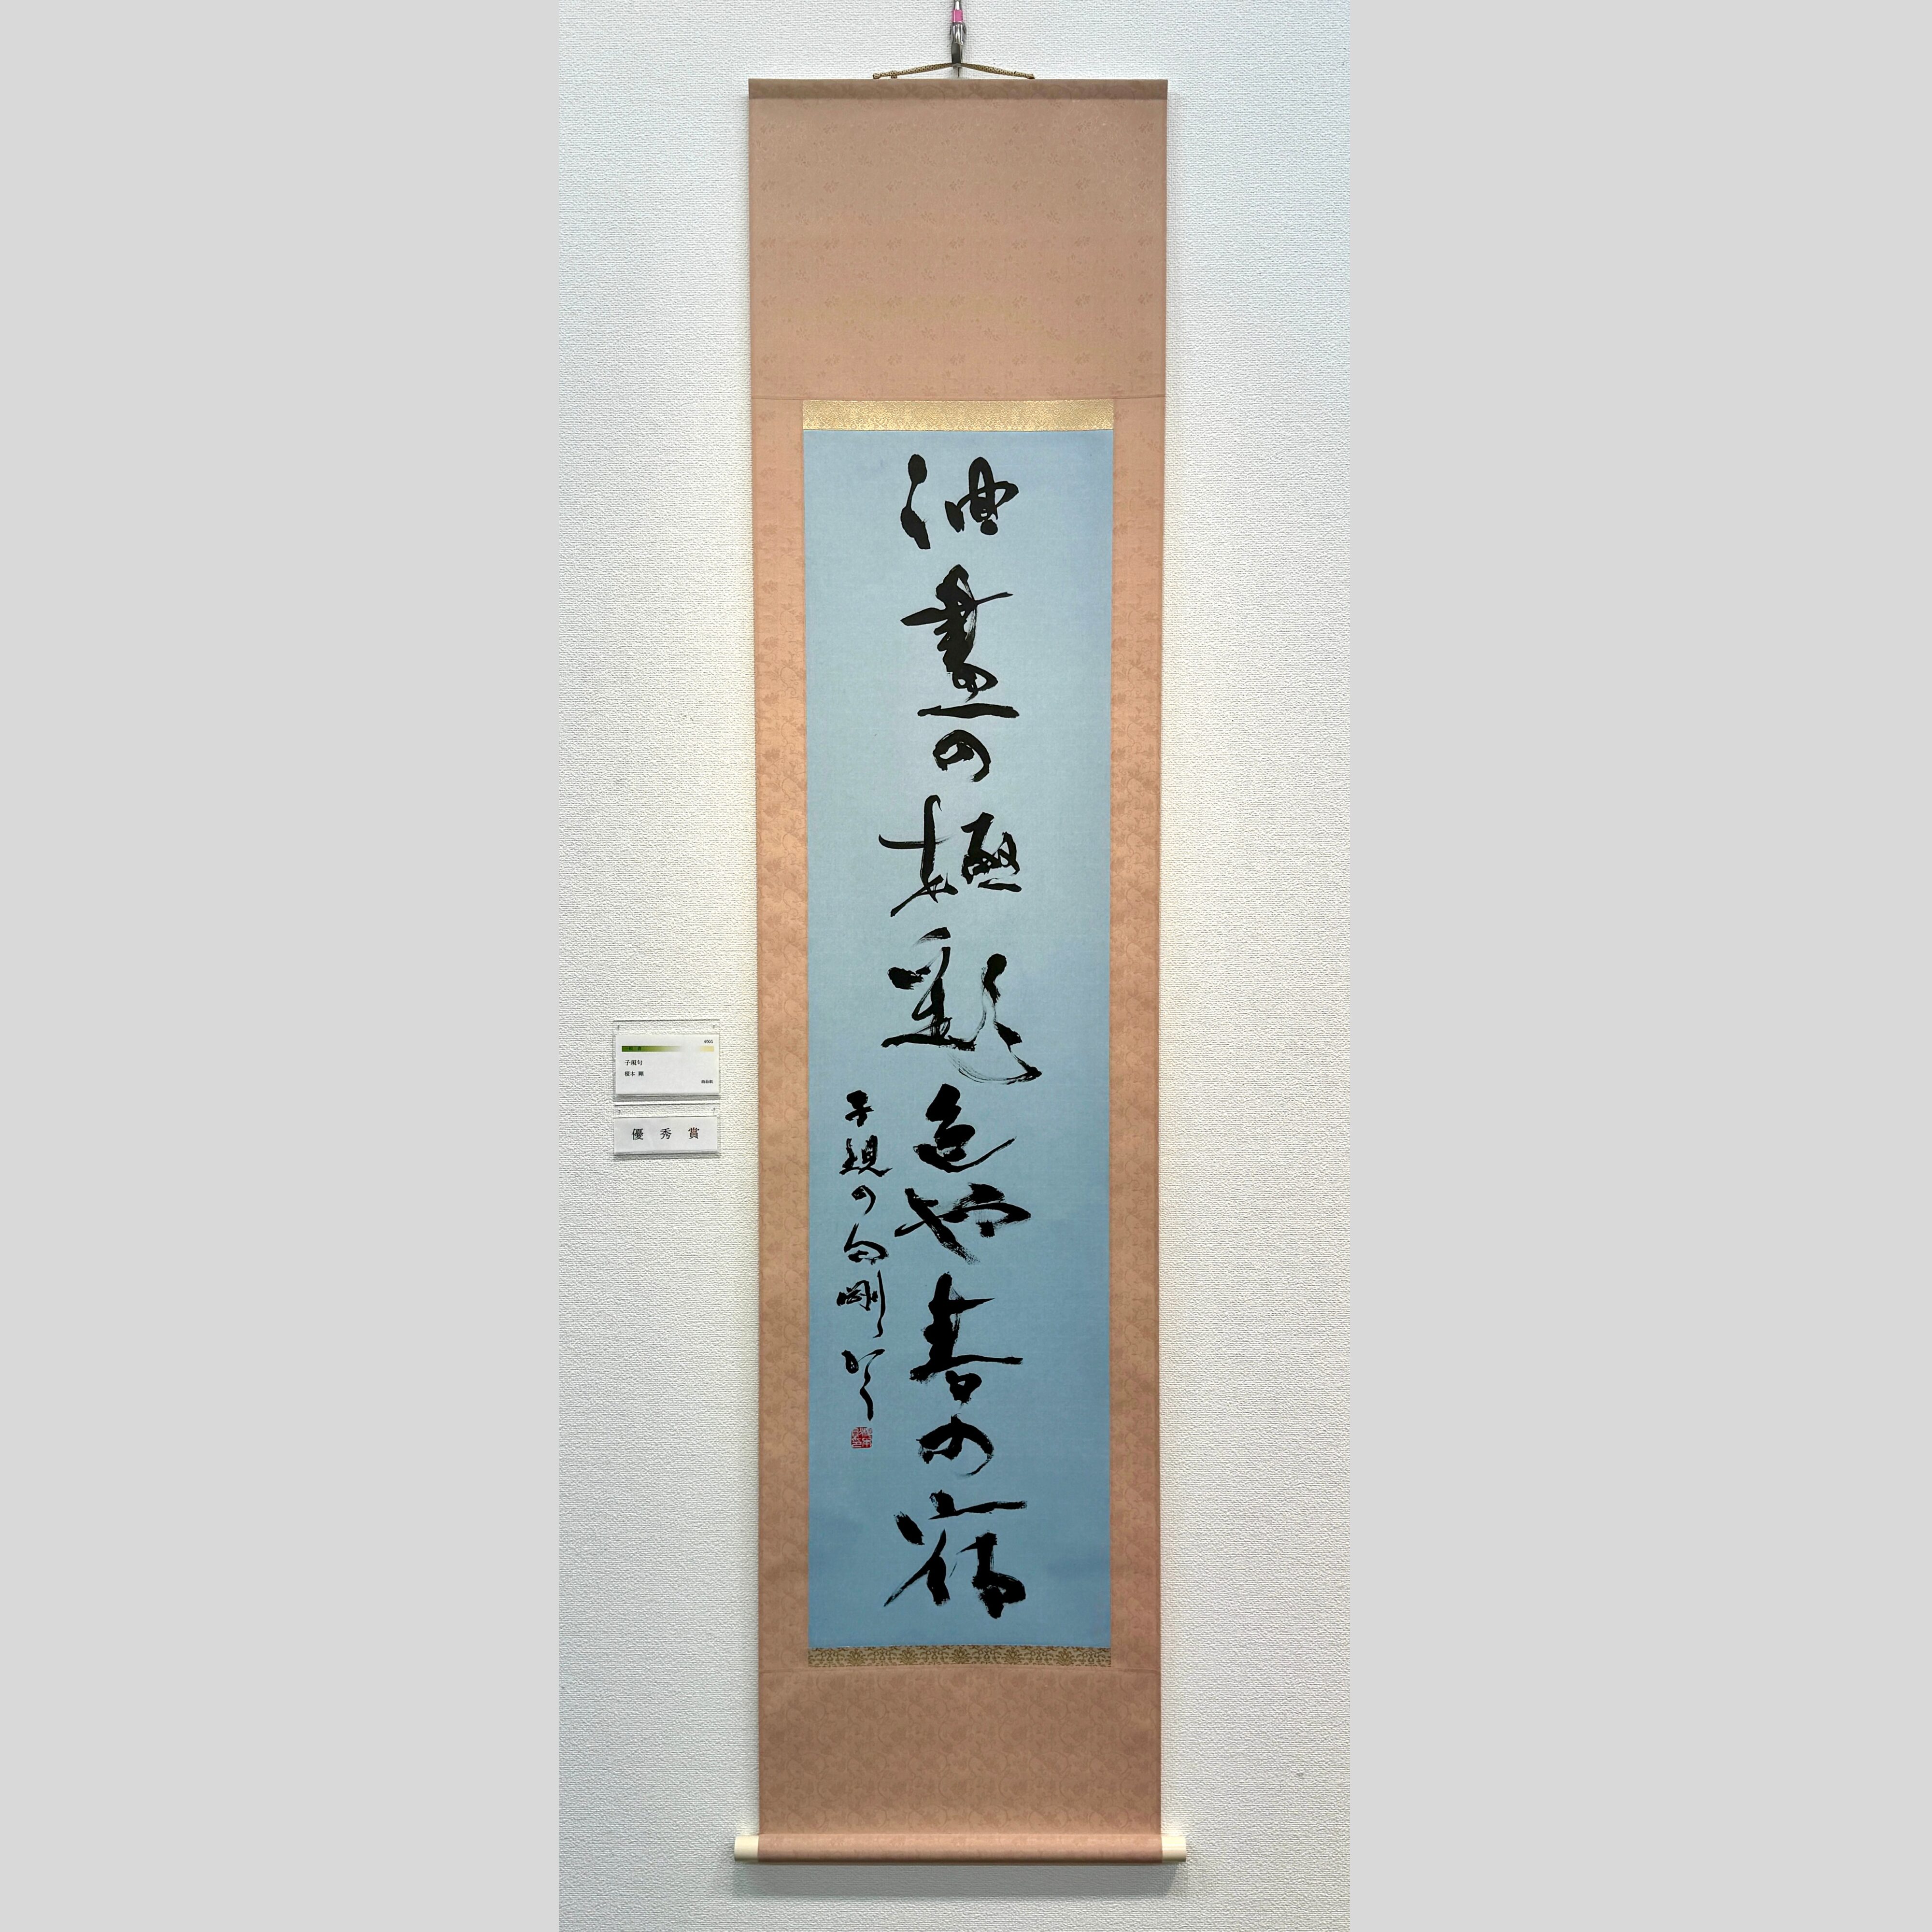 油畫の極彩色や春の宿
子規の句 剛
子規句
優秀賞